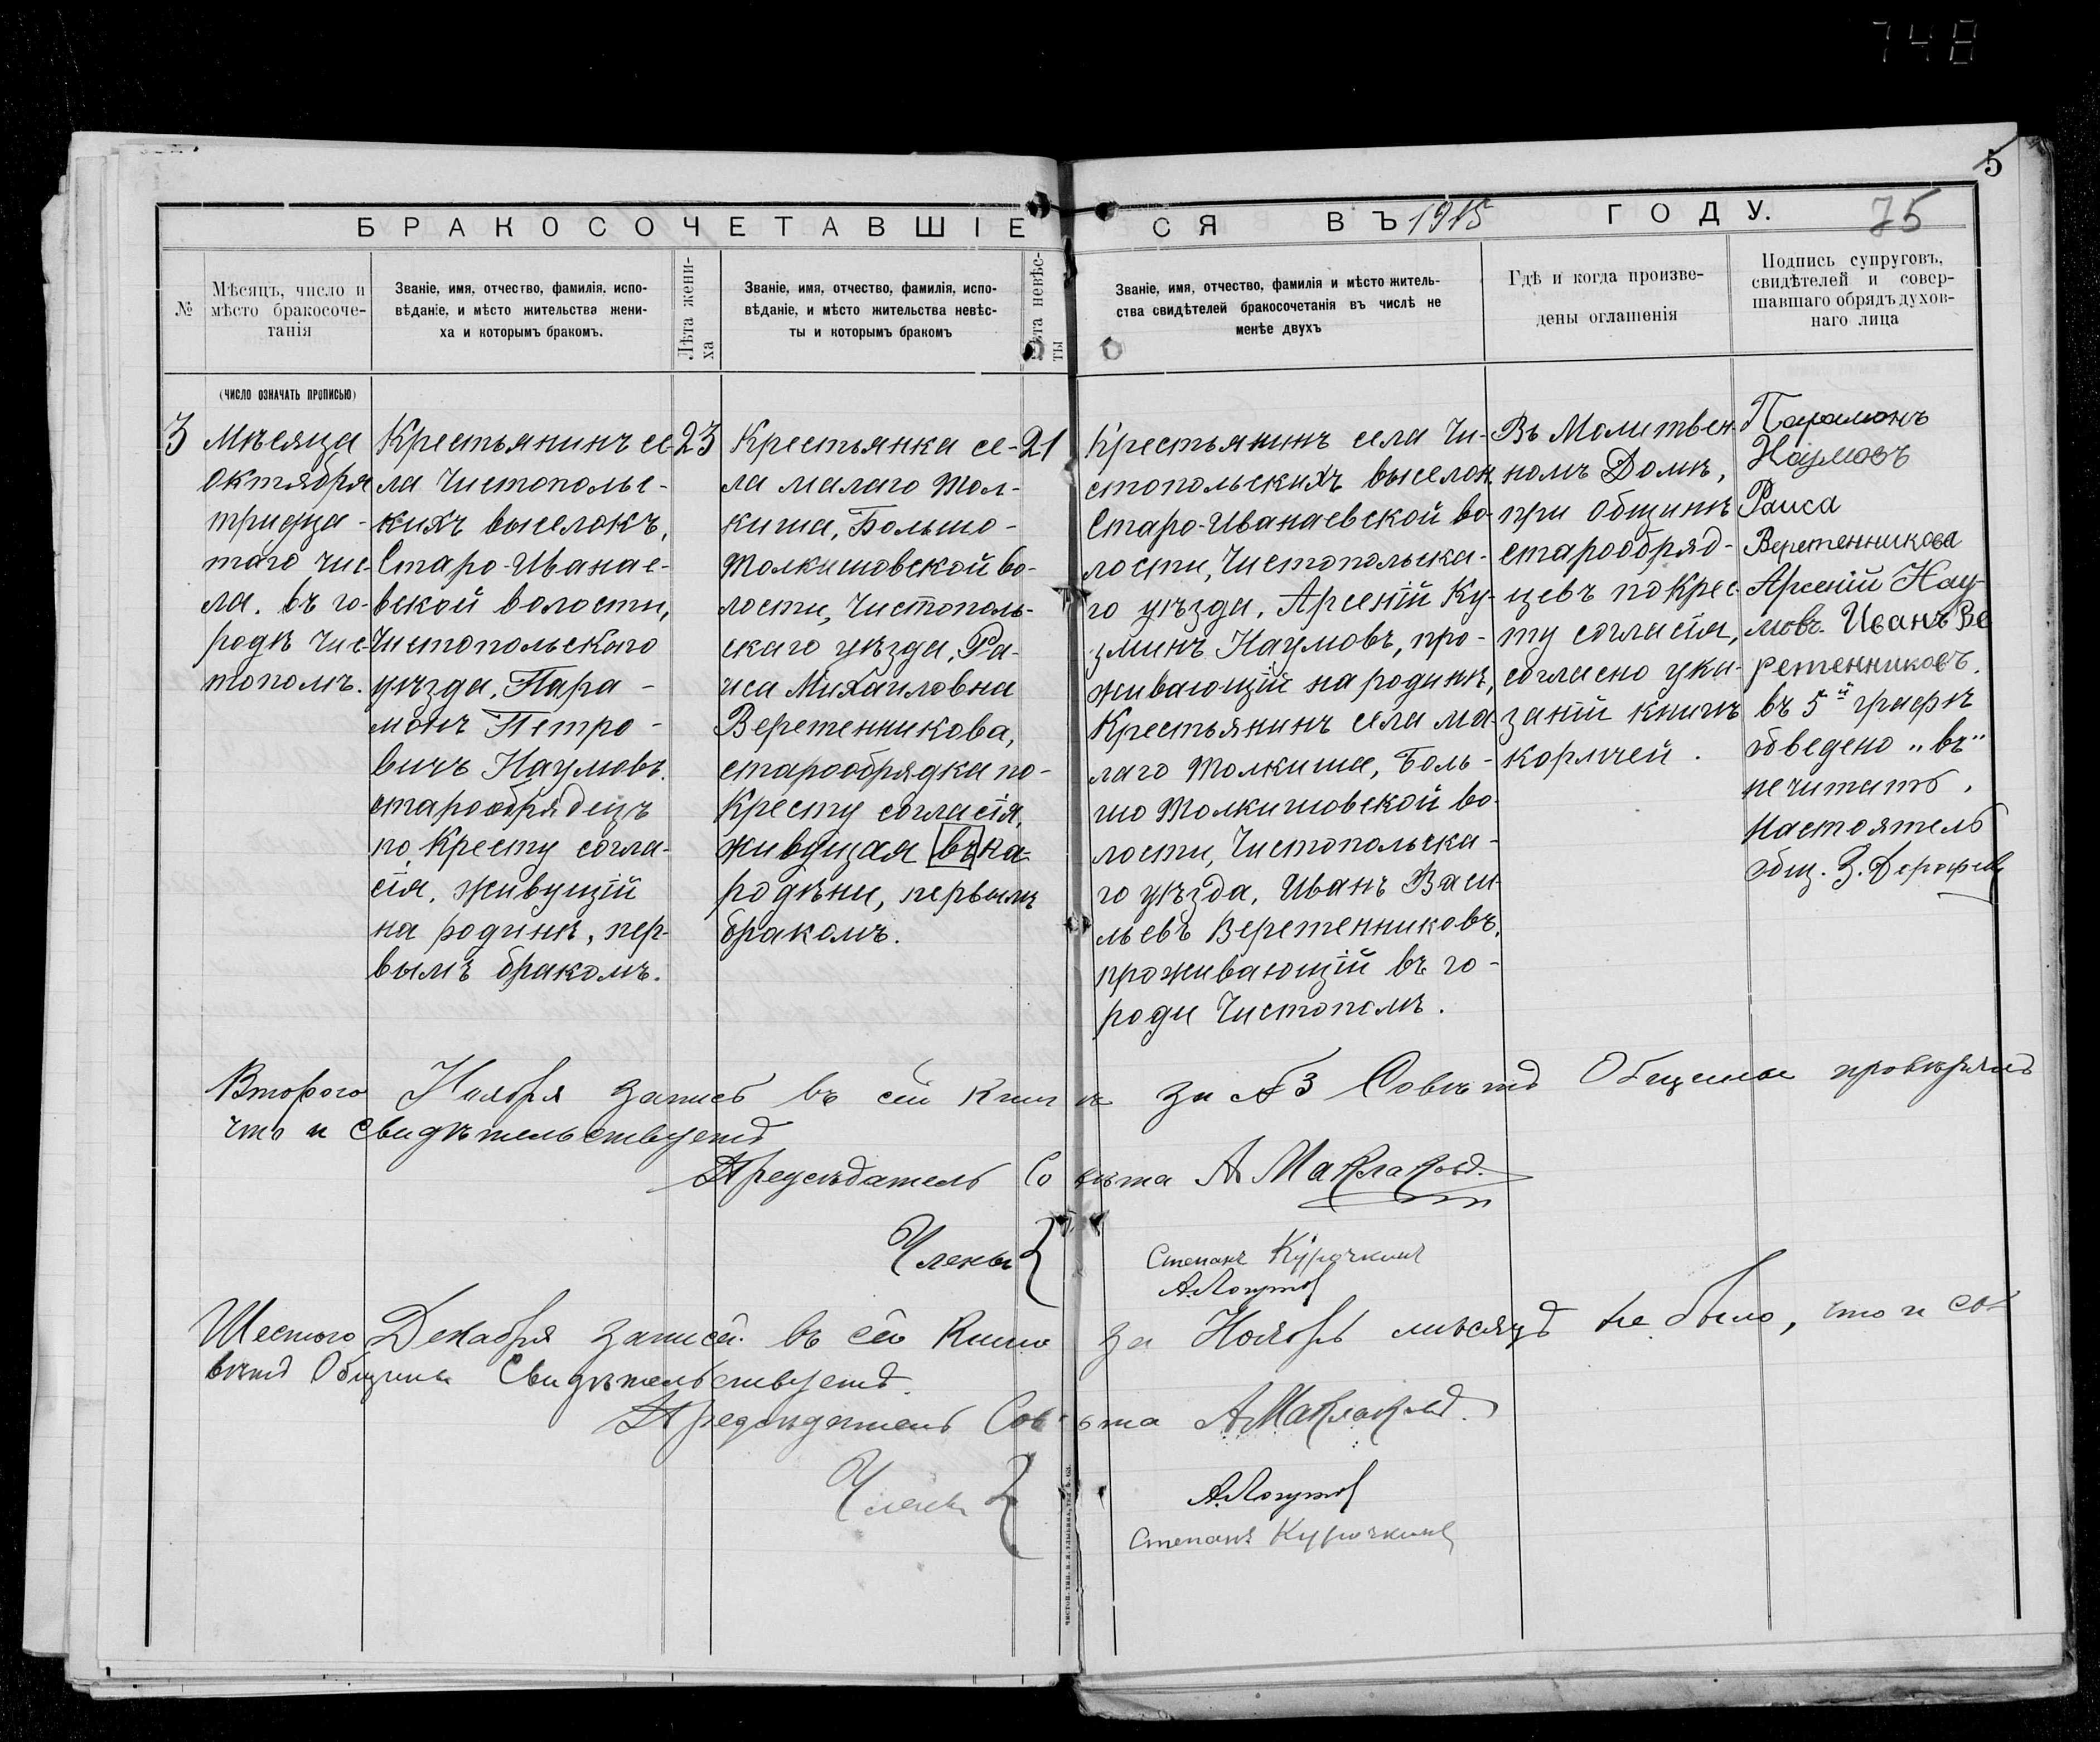 748
5
БРАКОСОЧЕТАВШІЕСЯ ВЪ 1915 ГОДУ.
75
№
Мѣсяцъ, число и
мѣсто бракосоче-
танія
(число означать прописью)
Званіе, имя, отчество, фамилія, испо-
вѣданіе, и мѣсто жительства жени-
ха и которымъ бракомъ.
Лѣта жени-
ха
Званіе, имя, отчество, фамилія, испо-
вѣданіе, и мѣсто жительства невѣс-
ты и которымъ бракомъ
Лѣта невѣс-
ты
Званіе, имя, отчество, фамилія и мѣсто житель-
ства свидѣтелей бракосочетанія въ числѣ не
менѣе двухъ
Гдѣ и когда произве-
дены оглашенія
Подпись супруговъ,
свидѣтелей и совер-
шавшаго обрядъ духов-
наго лица
3
Мѣсяца
Октября
тридца-
таго чис-
ла. въ го-
родѣ Чис-
тополѣ.
Крестьянинъ се-
ла Чистопольс-
кихъ выселокъ,
Старо-Иванае-
вской волости,
Чистопольскаго
уѣзда, Пара-
монъ Петро-
вичъ Наумовъ.
старообрядецъ
по Кресту согла-
сія, живущій
на родинѣ, пер-
вымъ бракомъ.
23
Крестьянка се-
ла малаго Тол-
киша, Больше-
Толкишовской во-
лости, Чистополь-
скаго уѣзда, Ра-
иса Михаиловна
Веретенникова,
старообрядка по-
Кресту согласія,
живущая въ на-
родѣни, первымъ
бракомъ.
21
Крестьянинъ села Чи-
стопольскихъ выселок
Старо-Иванаевской во-
лости, Чистопольска-
го уѣзда, Арсеній Ку-
зминъ Наумовъ, про-
живающій на родинѣ,
Крестьянинъ села ма-
лаго Толкиша, Боль-
шо Толкишовской во-
лости, Чистопольска-
го уѣзда, Иванъ Васи-
льевъ Веретенниковъ,
проживающій въ го-
роди Чистополѣ.
Въ Молитвен-
номъ Домѣ,
при общинѣ
старообряд-
цевъ по Крес-
ту согласія,
согласно ука-
заній книги
кормчей.
Парамонъ
Наумовъ
Раиса
Веретенникова
Арсеній Нау-
мовъ. Иванъ Ве
ретенниковъ.
въ 5й графѣ
обведено „въ"
не читать.
Настоятель
общ. З. Дорофеев
Второго Ноября запись въ сей книгѣ за №3 Совѣтъ Общины провѣрялъ
что и свидѣтельствуетъ
Предсѣдатель Совѣта А Маклаковъ.
Члены {
Степанъ Курочкинъ
А. Логутов
Шестого Декабря записей въ сію книгу за Ноябрь мѣсяцъ не было, что и Со-
вѣтъ Общины Свидѣтельствуетъ.
Предсѣдатель Совѣта А Маклаковъ.
Члены {
А. Логутов
Степанъ Курочкинъ